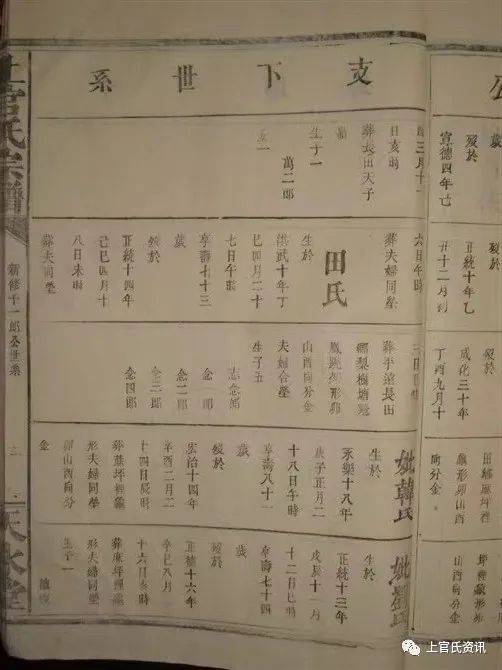 公
歲
歿於
宣德四年己
歿於
正統十年乙
丑十二月初
歿於
成化三十年
丁酉九月十
龜形卯山酉
向分金
坪裡龜形卯
山酉向分金
支下世系
三月十一
日亥時
葬長田天子
生子一
萬二郎
六日午時
葬夫婦同塋
田氏
生於
洪武十年丁
巳四月二十
七日午時
享壽七十三
歲
歿於
正統十四年
己巳四月十
八日未時
葬夫同塋
葬平遠長田
鄉梨樹塘
形卯
山酉向分金
夫婦合塋
生子五
志念郎
念一郎
念二郎
念三郎
念四郎
妣韓氏
生於
永樂十八年
庚子正月二
十八日午時
享壽八十一
歲
歿於
宏治十四年
辛酉二月二
十四日辰時
葬蔴坪裡龜
形夫婦同塋
卯山酉向分
金
妣劉氏
生於
正統十三年
戊辰十一月
十二日巳時
享壽七十四
歲
歿於
正德十六年
辛巳八月
十六日亥時
葬蔴坪裡龜
形夫婦同塋
生子一
上官氏宗譜
新修千一郎公世系
天水堂
上官氏资讯